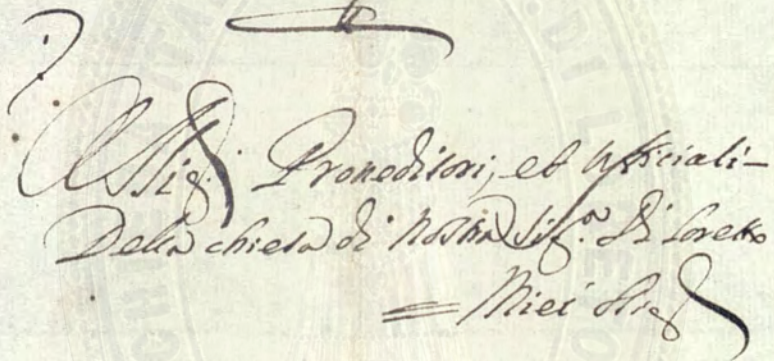 Alli Sig.ri Proueditori, et Vfficiali
Della chiesa di Nostra Sig.ra Di Loreto
Miei Sig.ri